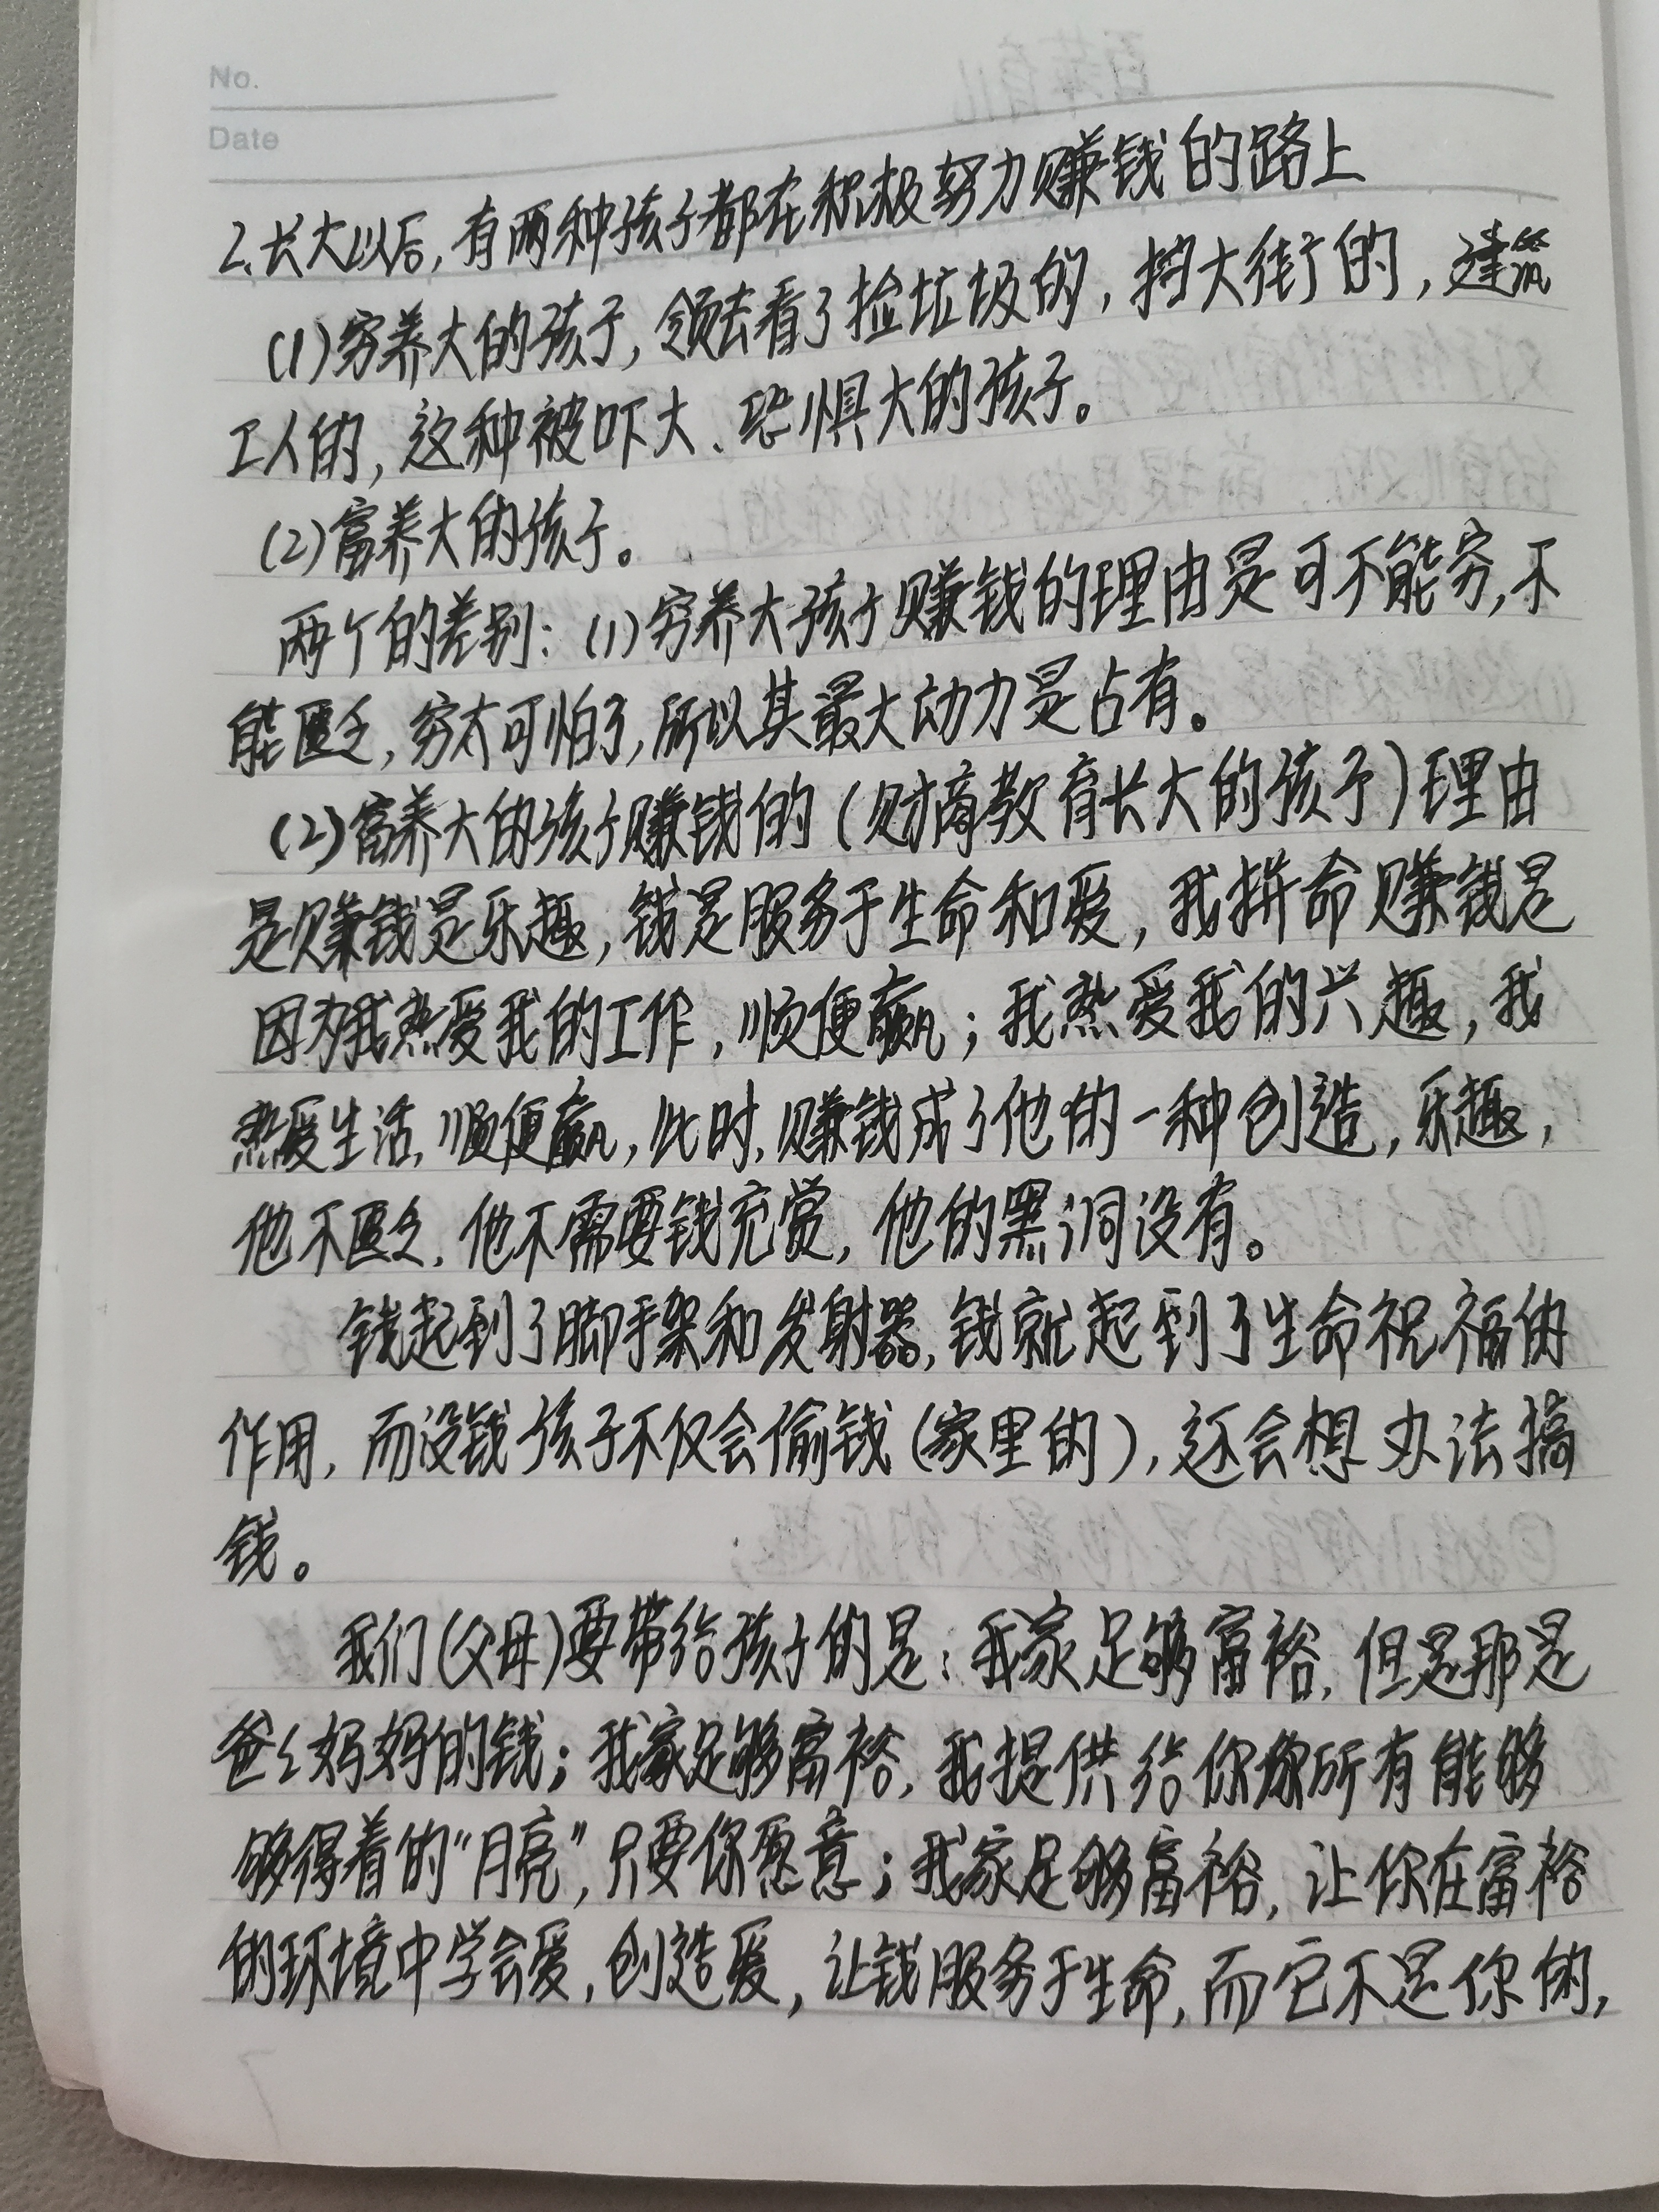 No.
Date
2、长大以后,有两种孩子都在积极努力赚钱的路上
(1)穷养大的孩子,领去看了捡垃圾的,扫大街的,建筑
工人的,这种被吓大、恐惧大的孩子。
(2)富养大的孩子。
两个的差别:(1)穷养大孩子赚钱的理由是可不能穷,不
能匮乏,穷太可怕了,所以其最大动力是占有。
(2)富养大的孩子赚钱的(财商教育长大的孩子)理由
是赚钱是乐趣,钱是服务于生命和爱,我拼命赚钱是
因为我热爱我的工作,顺便赢;我热爱我的兴趣,我
热爱生活,顺便赢,此时,赚钱成了他的一种创造,乐趣,
他不匮乏,他不需要钱充赏,他的黑洞没有。
钱起到了脚手架和发射器,钱就起到了生命祝福的
作用,而没钱孩子不仅会偷钱(家里的),还会想办法搞
钱。
我们(父母)要带给孩子的是:我家足够富裕,但是那是
爸々妈妈的钱;我家足够富裕,我提供给你你所有能够
够得着的“月亮”,只要你愿意;我家足够富裕,让你在富裕
的环境中学会爱,创造爱,让钱服务于生命,而它不是你的,